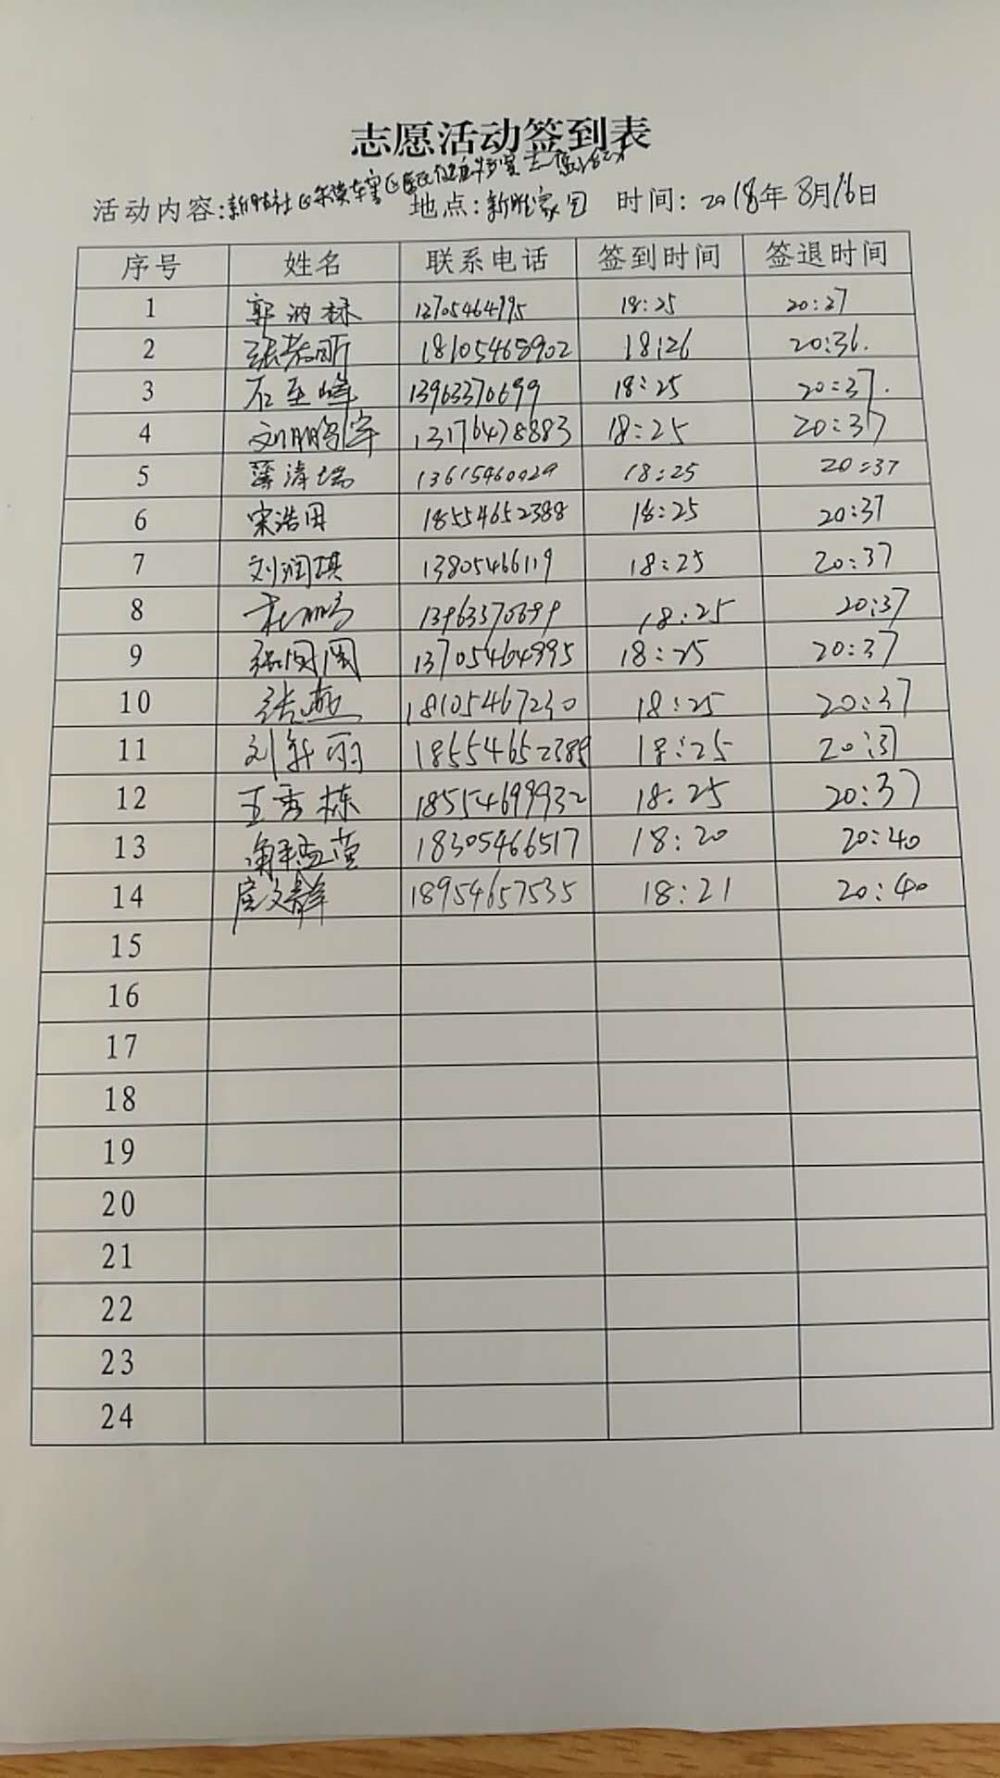 志愿活动签到表
活动内容: 地点:新旺家园 时间:2018年8月16日
序号 姓名 联系电话 签到时间 签退时间
1 郭 林 13705464995 18:25 20:37
2 张 18105468902 18:26 20:36.
3 石至峰 13963370699 18:25 20:37.
4 刘鹏军 13176478883 18:25 20:37
5 瑞 13615460029 18:25 20:37
6 宋浩田 18554652388 18:25 20:37
7 刘润琪 13805466119 18:25 20:37
8 杜鹏 13963370699 18:25 20:37
9 张圆圆 13705464995 18:25 20:37
10 张燕 18105467230 18:25 20:37
11 刘新丽 18554652388 18:25 20:37
12 王秀栋 18554699932 18:25 20:37
13 解孟莹 18305466517 18:20 20:40
14 扈文群 18954657535 18:21 20:40
15
16
17
18
19
20
21
22
23
24